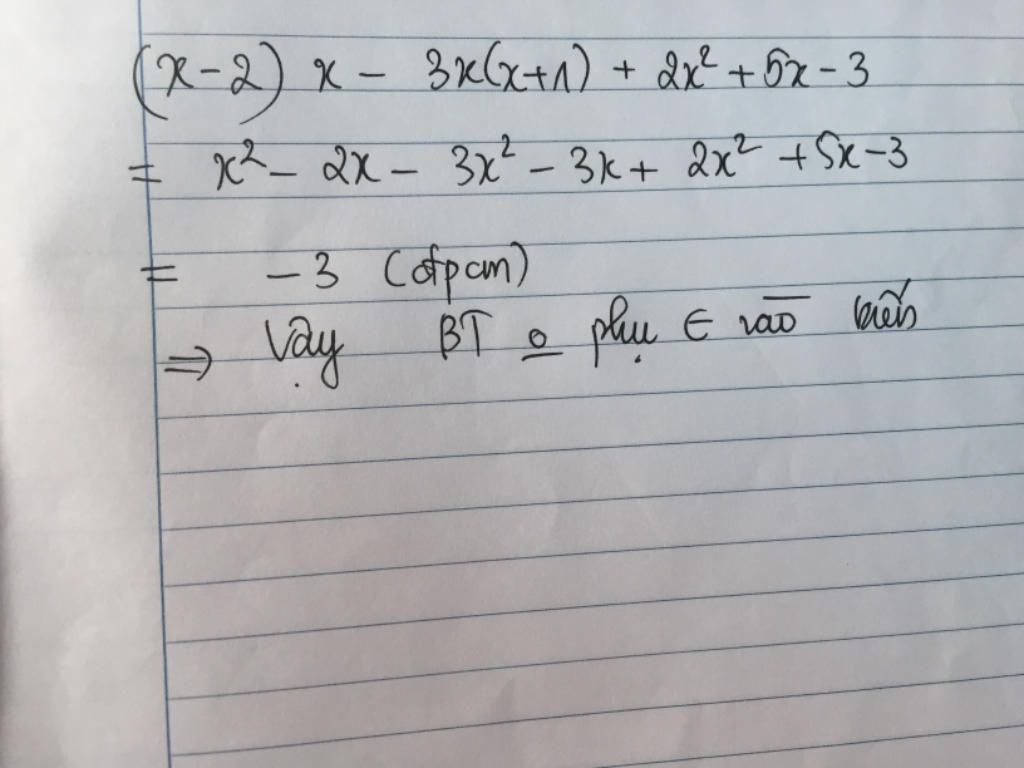 (x-2) x - 3x(x+1) + 2x² + 5x - 3
= x² - 2x - 3x² - 3x + 2x² + 5x - 3
= -3 (đpcm)
⇒ Vậy BT o phụ ∈ vào biến